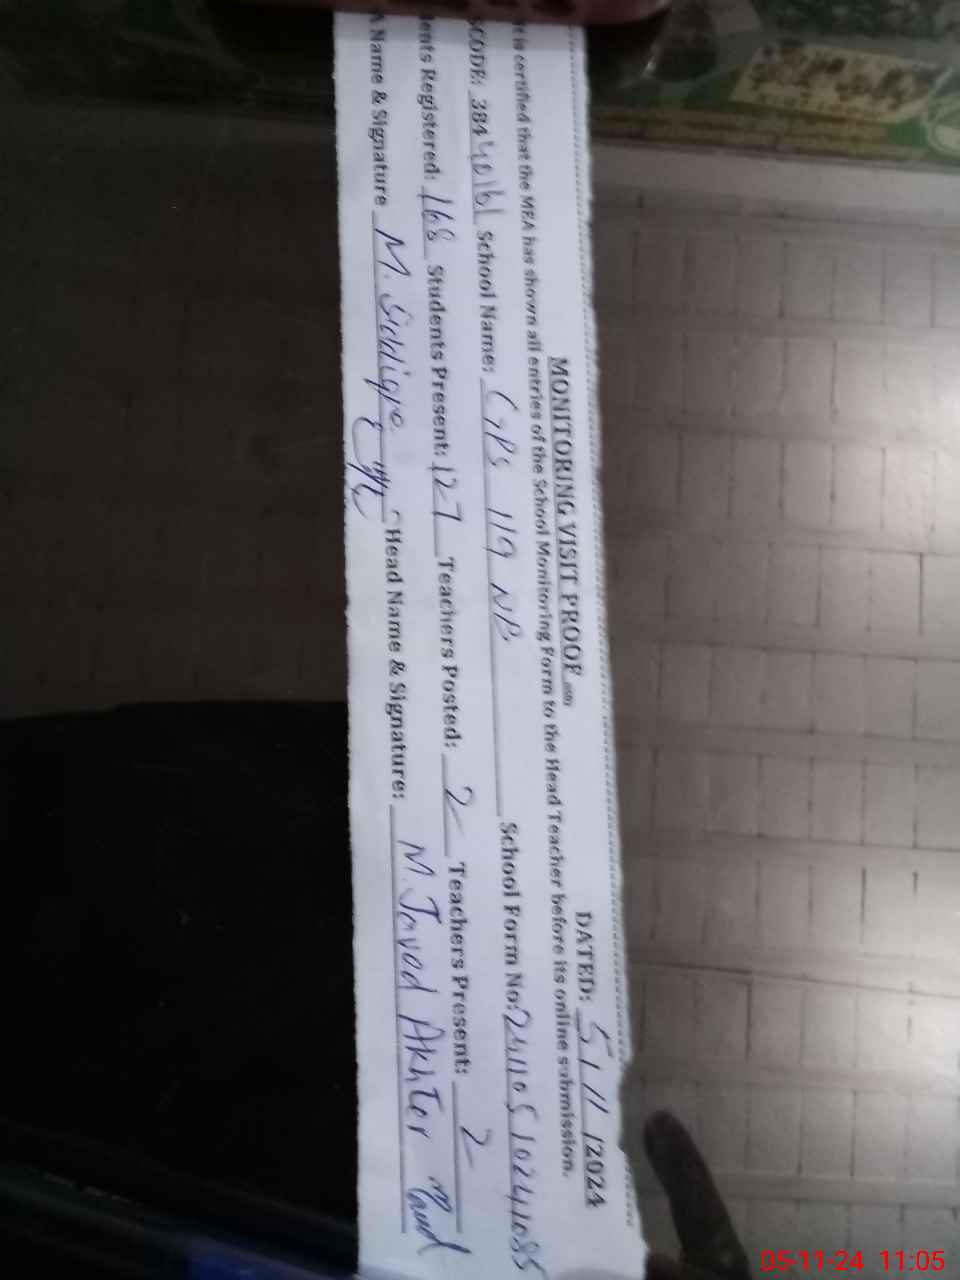 MONITORING VISIT PROOF
DATED: 5/11/2024
t is certified that the MEA has shown all entries of the School Monitoring Form to the Head Teacher before its online submission.
SCODE: 38440161 School Name: GPS 119 NB School Form No: 241105102441085
ents Registered: 168 Students Present: 127 Teachers Posted: 2 Teachers Present: 2
A Name & Signature M. Siddique Head Name & Signature: M. Javad Akhter
05-11-24 11:05